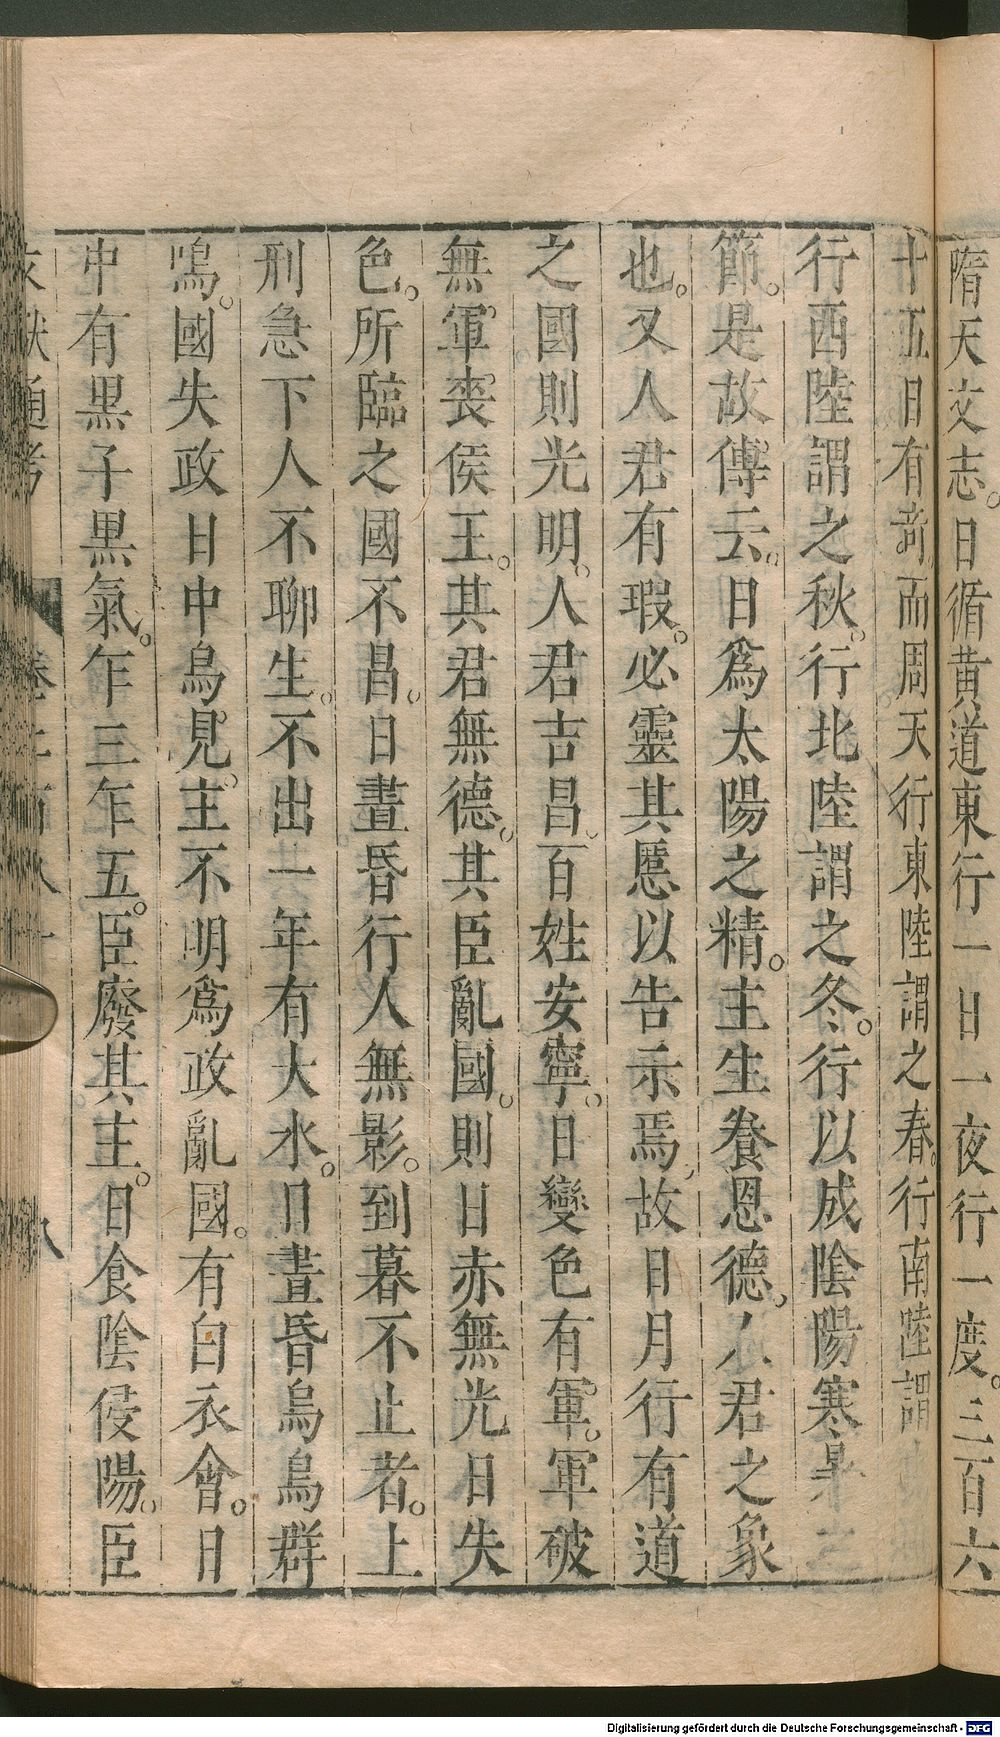 隋天文志。日循黄道東行一日一夜行一度。三百六
十五日有竒而周天行東陸謂之春。行南陸謂
行西陸謂之秋。行北陸謂之冬。行以成陰陽寒暑之
節。是故傳云。日爲太陽之精。主生養恩德。人君之象
也。又人君有瑕。必靈其慝以告示焉。故日月行有道
之國則光明。人君吉昌。百姓安寧。日變色有軍。軍破
無軍。喪侯王。其君無德。其臣亂國。則日赤無光日失
色。所臨之國不昌。日晝昏行人無影。到暮不止者。上
刑急下人不聊生。不出一年有大水。日晝昏烏鳥群
鳴。國失政日中烏見。主不明爲政亂國。有白衣會。日
中有黒子黒氣。乍三乍五。臣廢其主。日食陰侵陽。臣
通考 卷 八
Digitalisierung gefördert durch die Deutsche Forschungsgemeinschaft - DFG